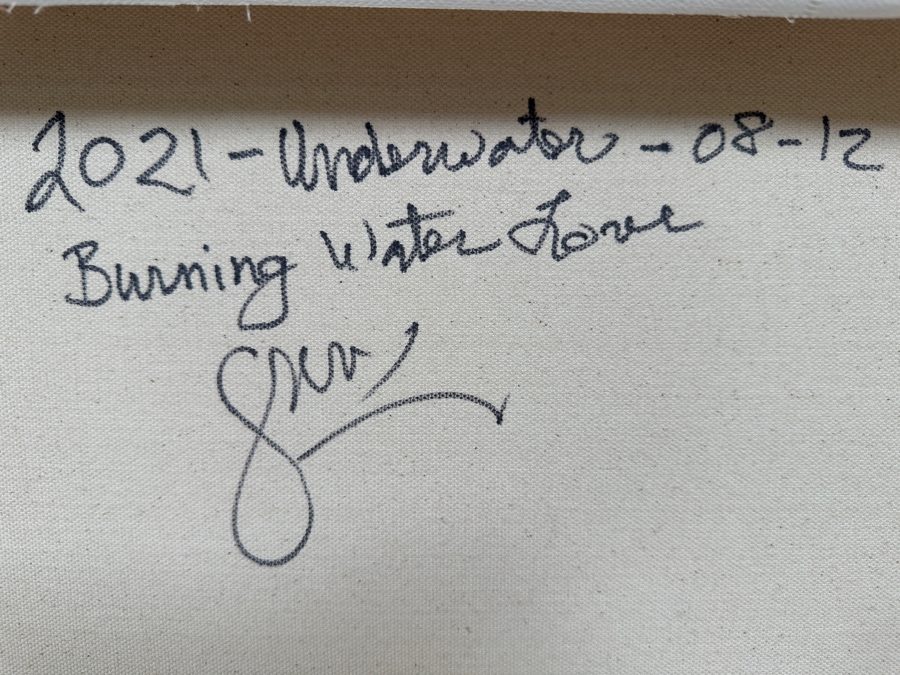 2021-Underwater-08-12
Burning Water Love